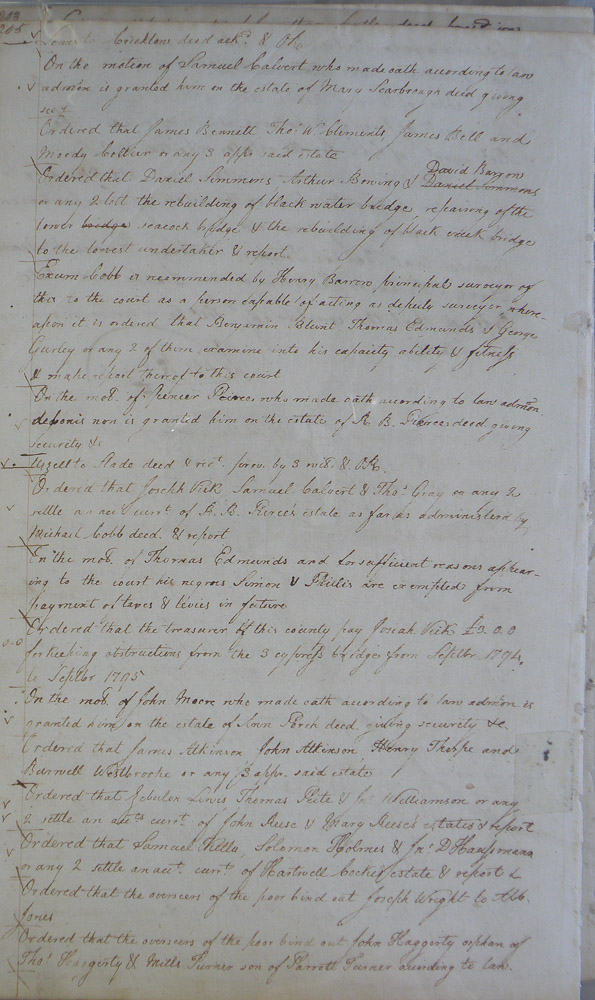 to Crichlow deed ackd. & OR
On the motion of Samuel Calvert who made oath according to law
admon is granted him on the estate of Mary Scarbrough decd giving
secy
Ordered that James Bennett Thos. W. Clements, James Bell and
Moody Collier or any 3 appr. said estate
David Barrow
Ordered that Daniel Simmons, Arthur Bowing & Daniel Simmons
or any 2 lett the rebuilding of black water bridge, repairing of the
lower bridge seacock bridge & the rebuilding of black creek bridge
to the lowest undertaker & report.
Exum Cobb is recommended by Henry Barrow, principal surveyor of
this to the court as a person capable of acting as deputy surveyor where-
upon it is ordered that Benjamin Blunt Thomas Edmunds & George
Gurley or any 2 of them examine into his capacity ability & fitness
& make report thereof to this court
On the mot. of Spencer Pierce who made oath according to law admon
debonis non is granted him on the estate of R. B. Pierce decd giving
security &c
to Slade deed & rect. prov. by 3 wits. & OR.
Ordered that Joseph Vick Samuel Calvert & Thos. Gray or any 2
settle an acct currt. of R. B. Pierce's estate as far as administered by
Michael Cobb decd. & report
On the mot. of Thomas Edmunds and for sufficient reasons appear-
ing to the court his negroes Simon & Phillis are exempted from
payment of taxes & levies in future
Ordered that the treasurer of this county pay Josiah Vick £9.0.0
for keeping obstructions from the 3 cypress bridges from Septbr 1794
to Septbr 1795
On the mot. of John Moore who made oath according to law admon is
granted him on the estate of Ann Porch decd. giving security &c
Ordered that James Atkinson, John Atkinson, Henry Thorpe and
Burwell Westbrooke or any 3 appr. said estate
Ordered that Zebulon Lewis Thomas Pete & Jno. Williamson or any
2 settle an accts. currt. of John Reese & Mary Reese's estates & report
Ordered that Samuel Kello, Solomon Holmes & Jno. D Haussmann
or any 2 settle an act. currt. of Hartwell Cocke's estate & report &
Ordered that the overseers of the poor bind out Joseph Wright to Alb.
Jones
Ordered that the overseers of the poor bind out John Haggerty orphan of
Thos. Haggerty & Mills Turner son of Parrott Turner according to law.